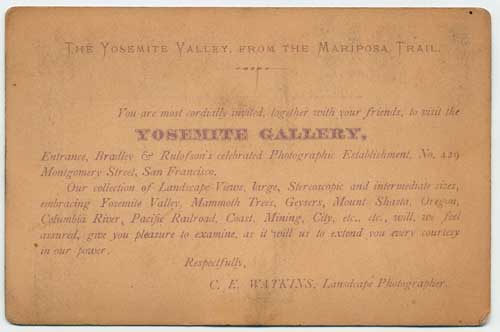 THE YOSEMITE VALLEY, FROM THE MARIPOSA TRAIL.
You are most cordially invited, together with your friends, to visit the
YOSEMITE GALLERY,
Entrance, Bradley & Rulofson's celebrated Photographic Establishment, No. 429
Montgomery Street, San Francisco.
Our collection of Landscape Views, large, Stereoscopic and intermediate sizes,
embracing Yosemite Valley, Mammoth Trees, Geysers, Mount Shasta, Oregon,
Columbia River, Pacific Railroad, Coast, Mining, City, etc., etc., will, we feel
assured, give you pleasure to examine, as it will us to extend you every courtesy
in our power.
Respectfully,
C. E. WATKINS, Landscape Photographer.